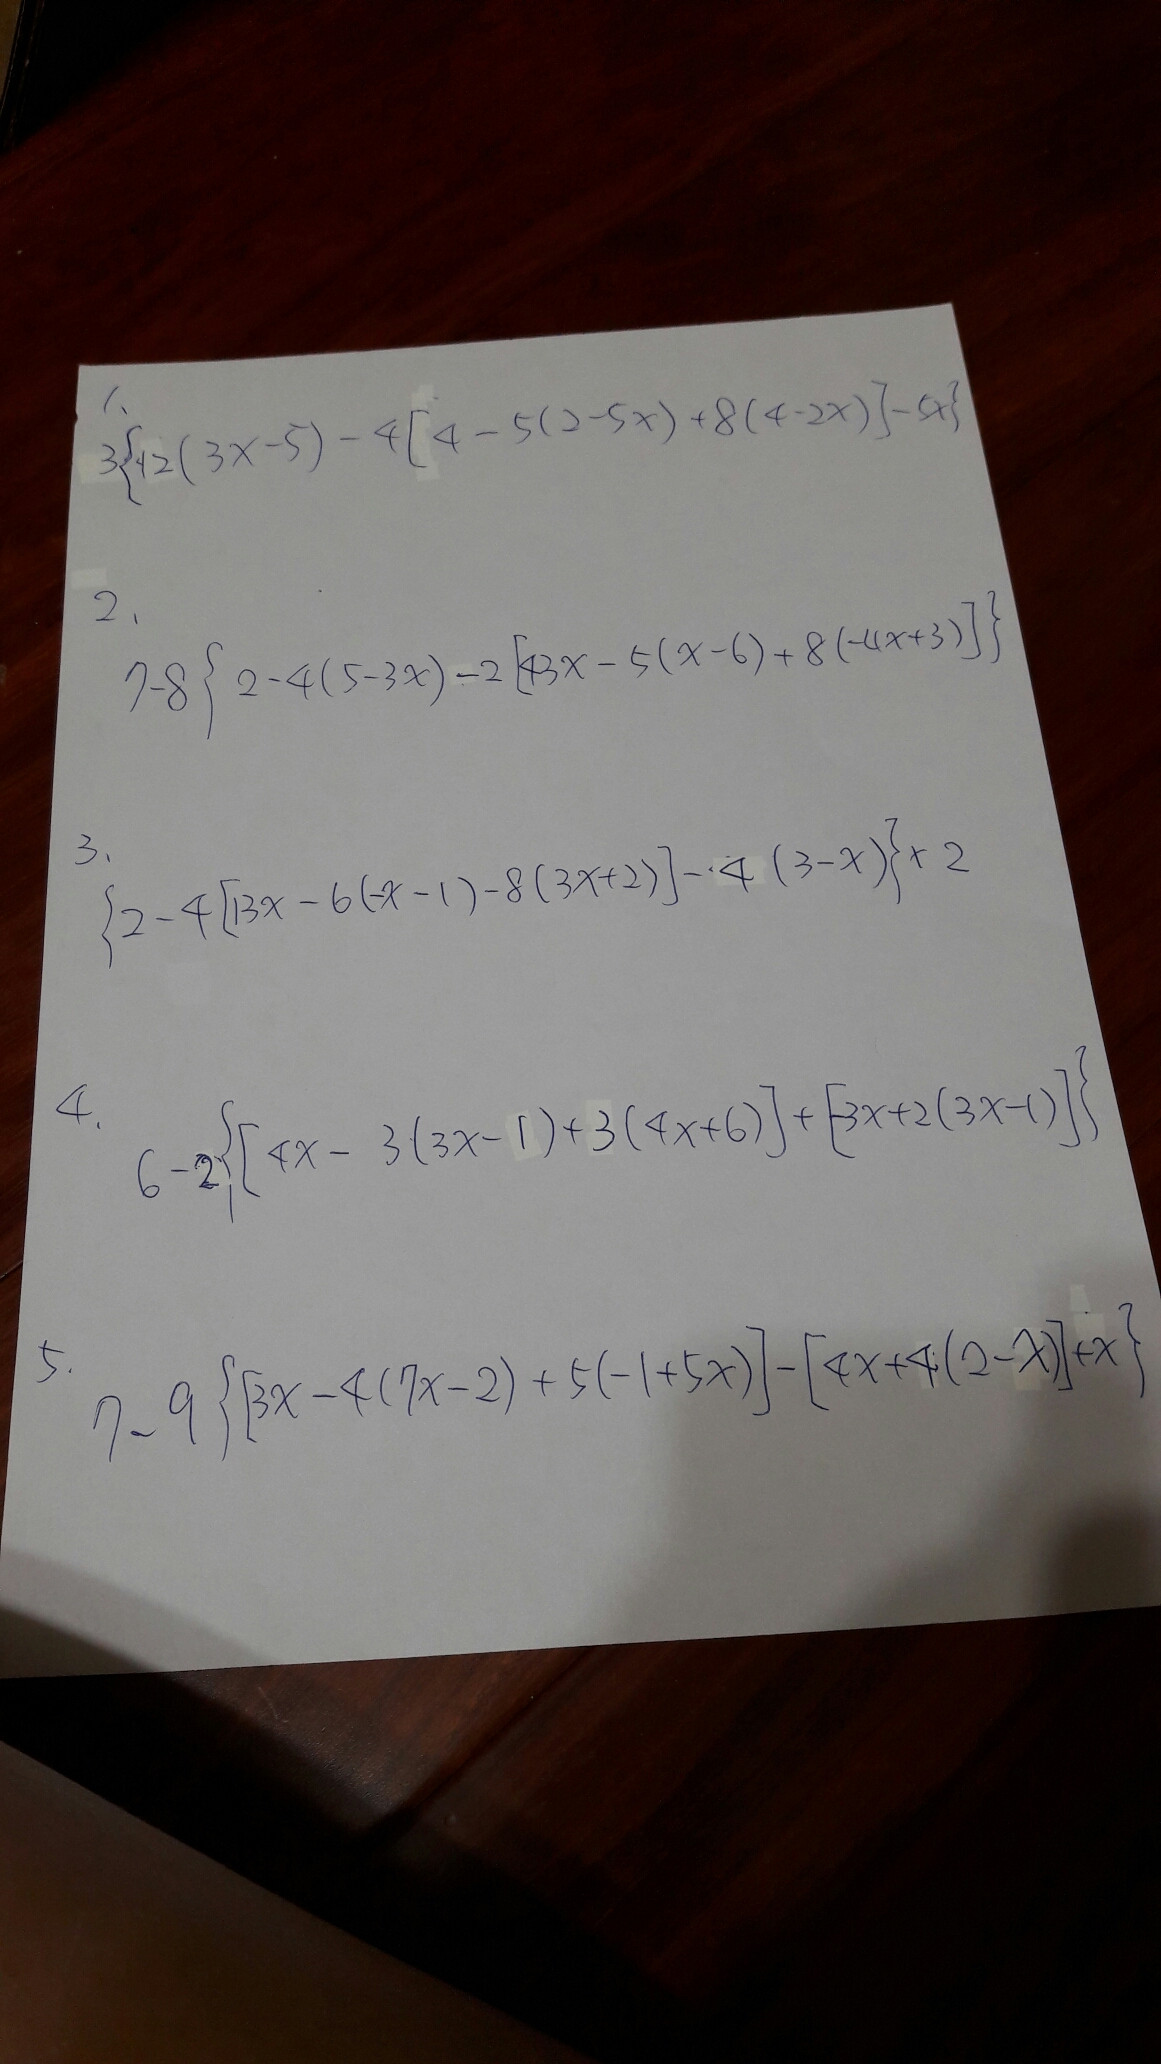 1.
3{42(3x-5)-4[4-5(2-5x)+8(4-2x)]-5x}
2.
7-8{2-4(5-3x)-2[43x-5(x-6)+8(-4x+3)]}
3.
{2-4[13x-6(-x-1)-8(3x+2)]-4(3-x)}+2
4.
6-2{[4x-3(3x-1)+3(4x+6)]+[3x+2(3x-1)]}
5.
7-9{[3x-4(7x-2)+5(-1+5x)]-[4x+4(2-x)]+x}